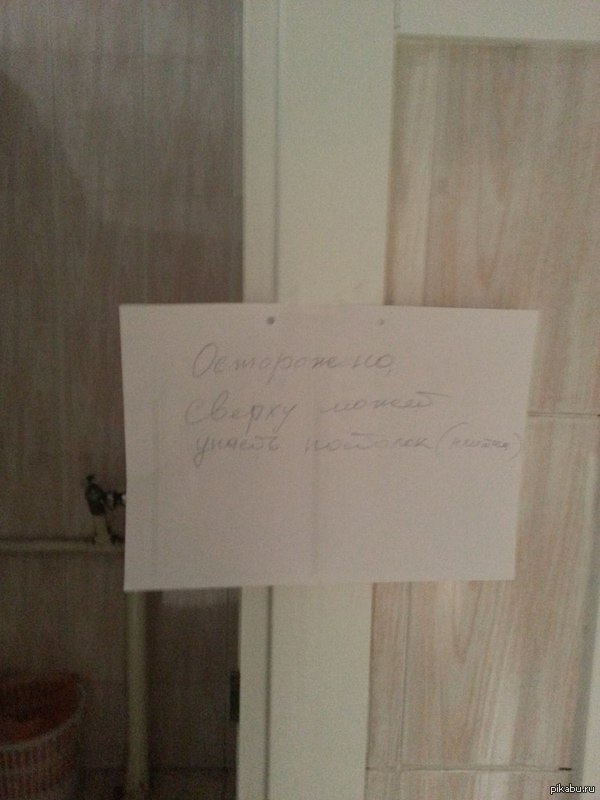 Осторожно,
сверху может
упасть потолок (плитка)
pikabu.ru